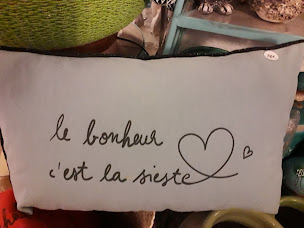 le bonheur
c'est la sieste